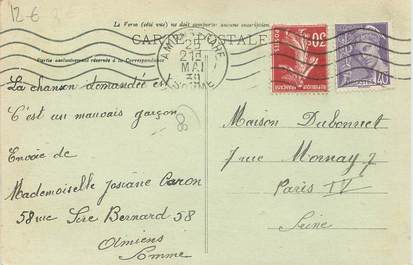 12 €
Le Verso (côté vue) ne doit contenir aucune inscription.
CARTE POSTALE
Partie exclusivement réservée à la Correspondance
GARE
21H
MAI
SOMME
30
POSTES
REPUBLIQUE FRANÇAISE
40
La chanson demandée est
C'est un mauvais garçon
Envoie de
Mademoiselle Josiane Caron
58 rue Sire Bernard 58
Amiens
Somme
80
Maison Dubonnet
7 rue Mornay 7
Paris IV
Seine